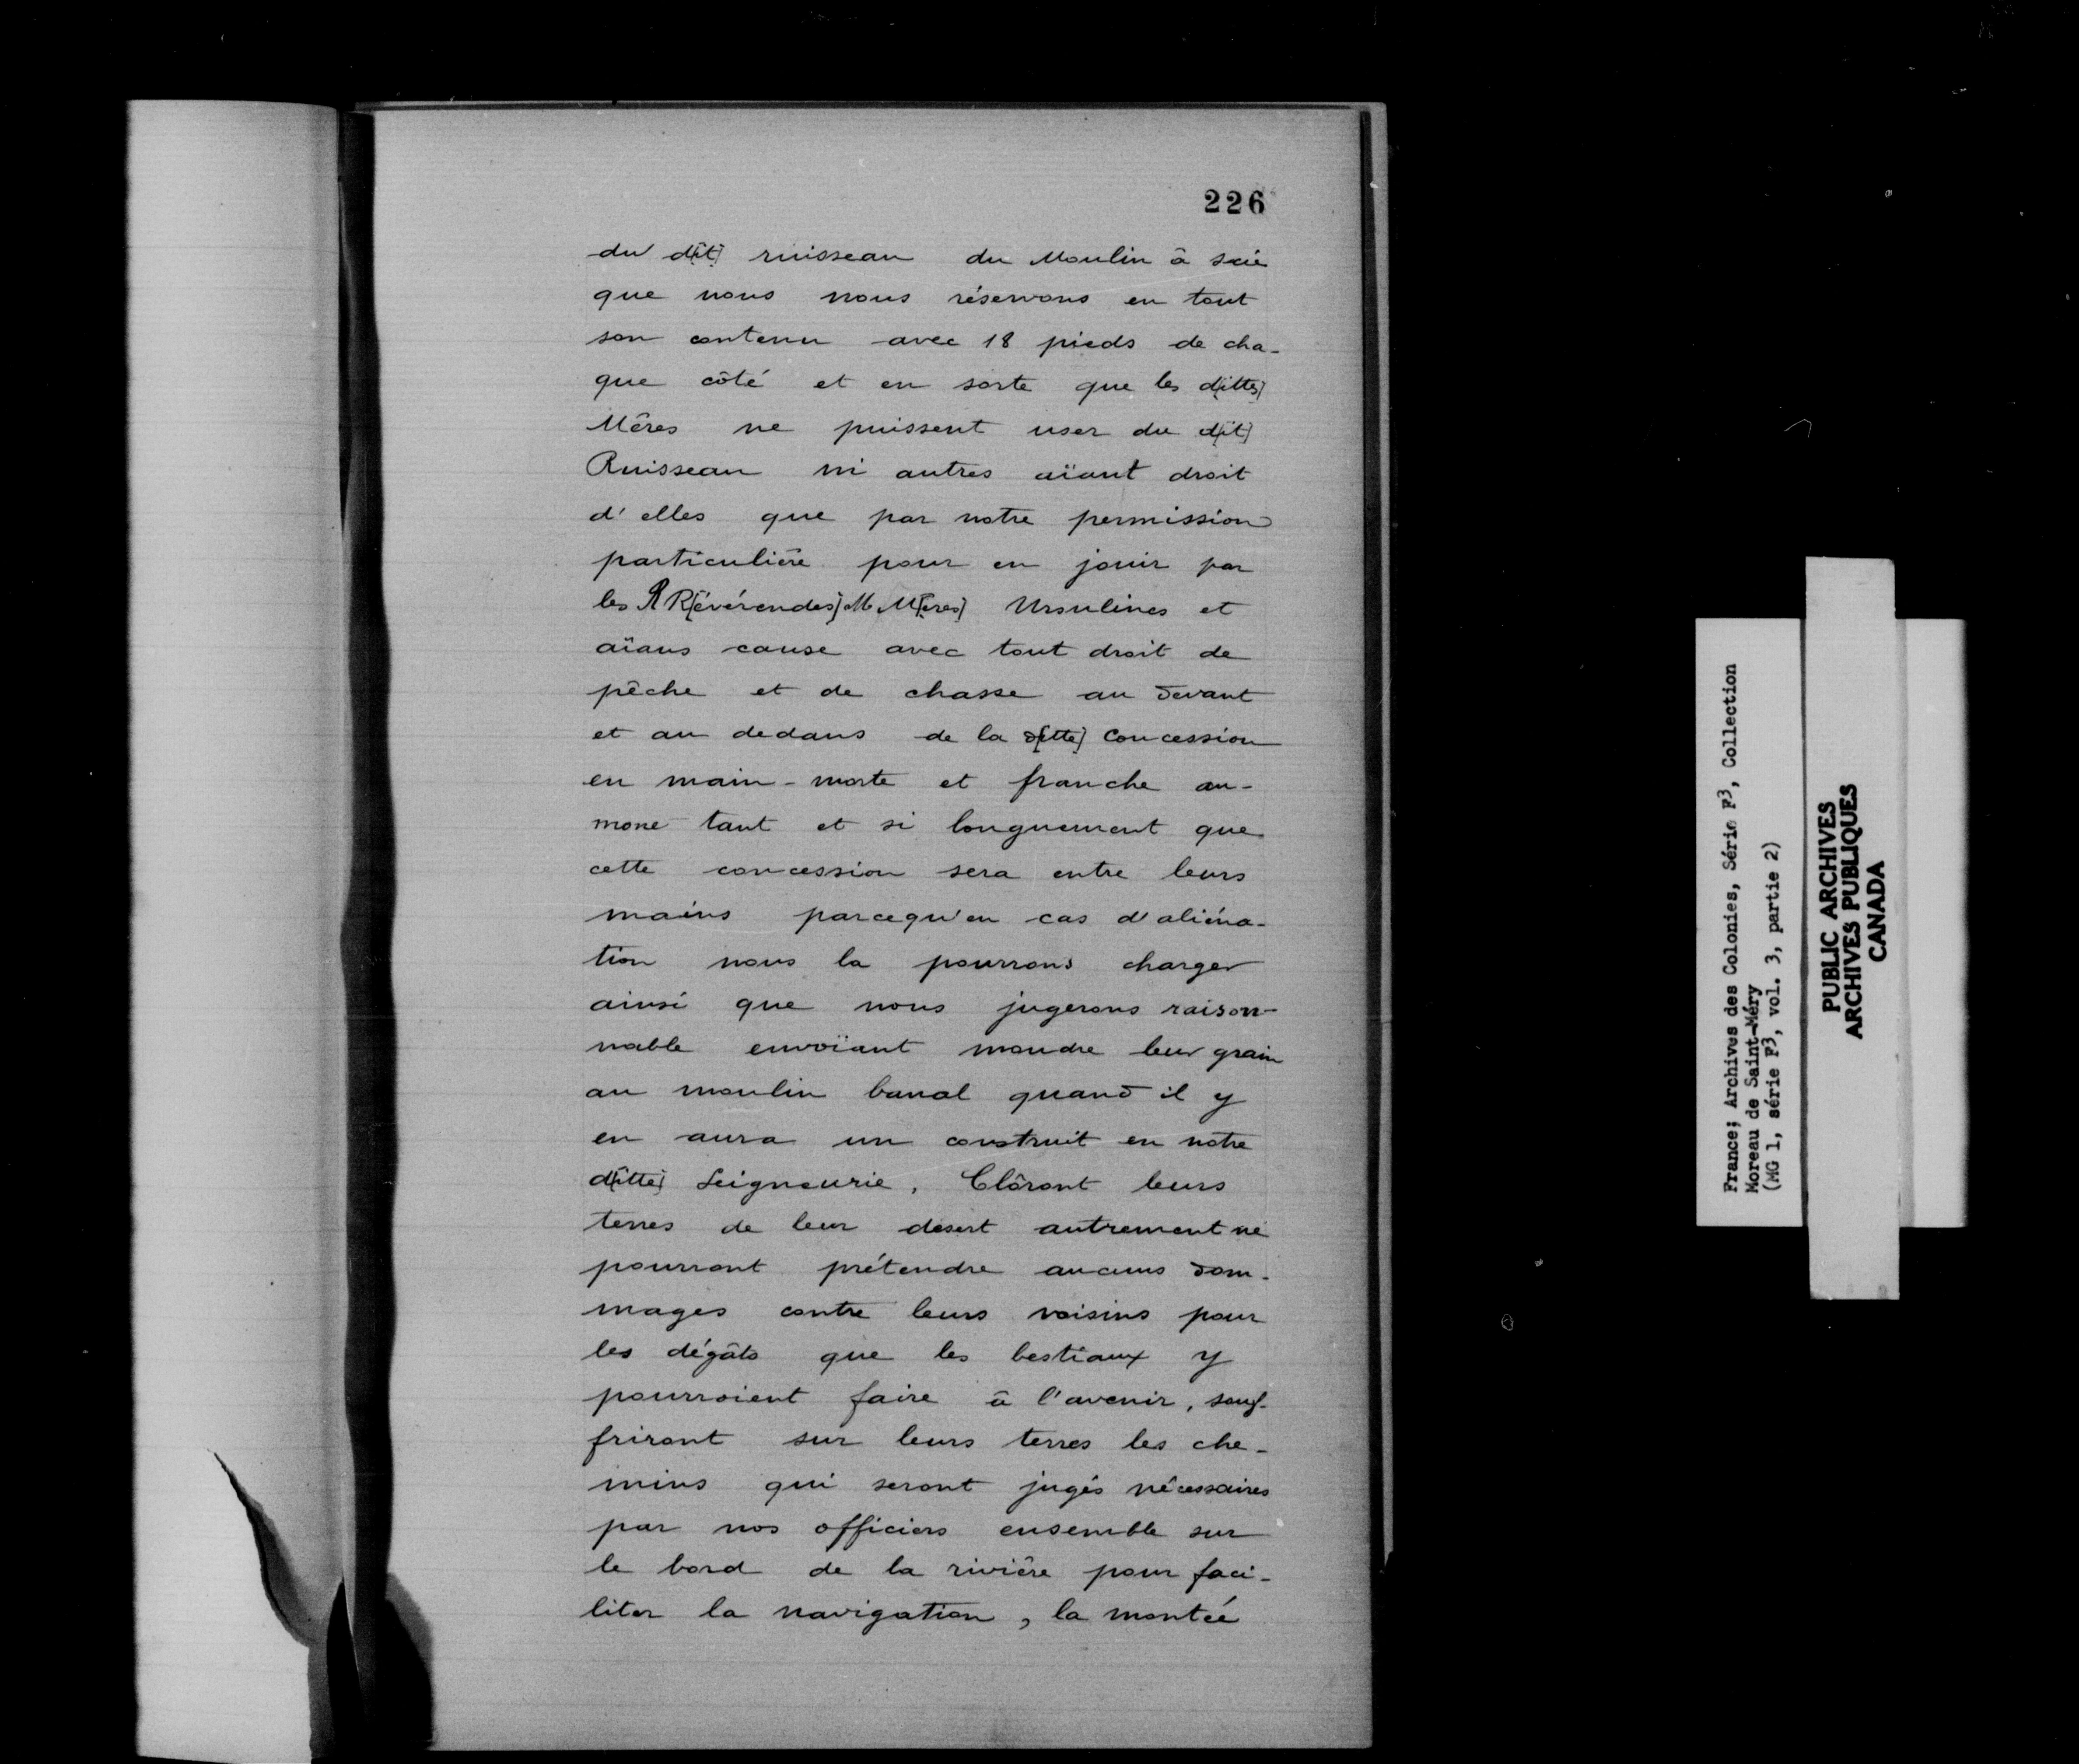 226
du d[it] ruisseau du Moulin à scie
que nous nous réservons en tout
son contenu avec 18 pieds de cha-
que côté et en sorte que les d[ittes]
Mêres ne puissent user du d[it]
Ruisseau ni autres aïant droit
d'elles que par notre permission
particulière pour en jouir par
les R R[évérendes] M M[ères] Ursulines et
aïans cause avec tout droit de
pêche et de chasse au devant
et au dedans de la d[itte] Concession
en main-morte et franche au-
mone tant et si longuement que
cette concession sera entre leurs
mains parcequ'en cas d'aliéna-
tion nous la pourrons charger
ainsi que nous jugerons raison-
nable envoïant moudre leur grain
au moulin banal quand il y
en aura un construit en notre
d[itte] Seigneurie, Clôront leurs
terres de leur desert autrement ne
pourront prétendre aucuns dom-
mages contre leurs voisins pour
les dégâts que les bestiaux y
pourroient faire à l'avenir, souf-
friront sur leurs terres les che-
mins qui seront jugés nécessaires
par nos officiers ensemble sur
le bord de la rivière pour faci-
liter la navigation, la montée
France; Archives des Colonies, Série F3, Collection
Moreau de Saint-Méry
(MG 1, série F3, vol. 3, partie 2)
PUBLIC ARCHIVES
ARCHIVES PUBLIQUES
CANADA